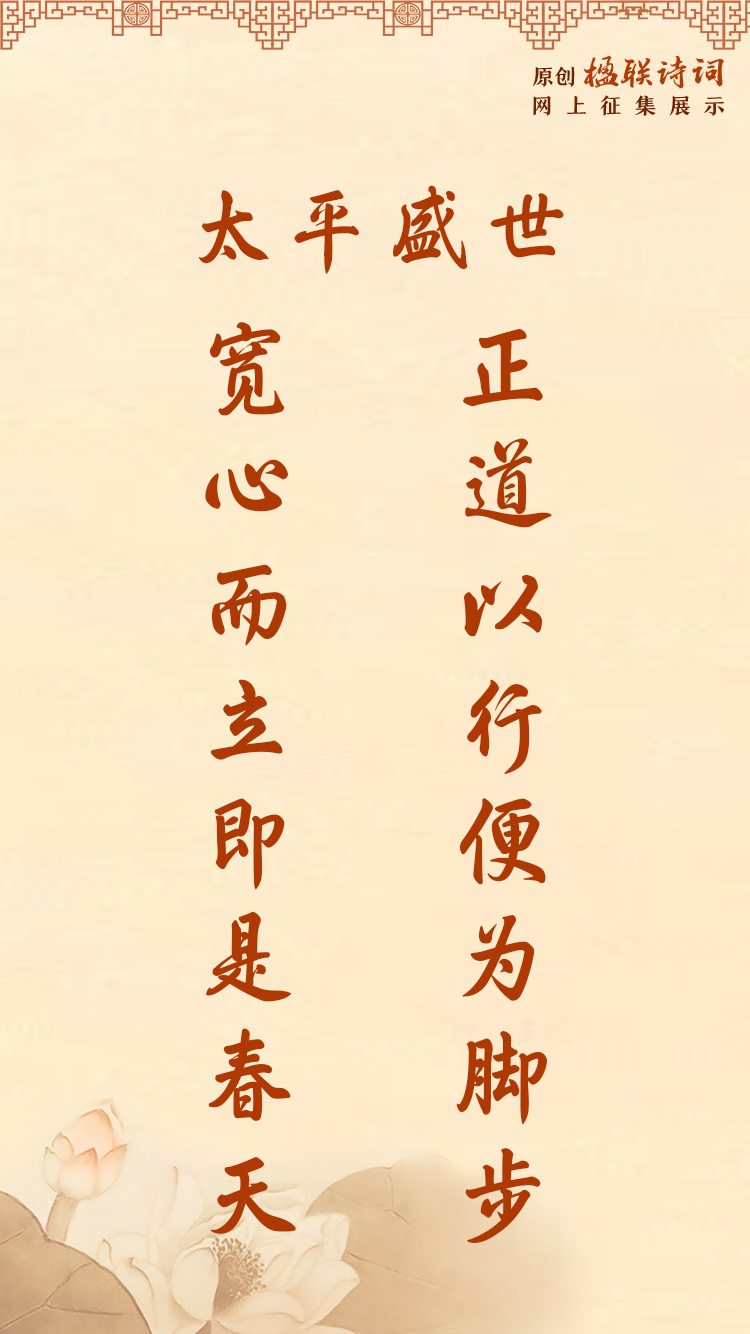 原创 楹联诗词
网上征集展示
太平盛世
正道以行便为脚步
宽心而立即是春天